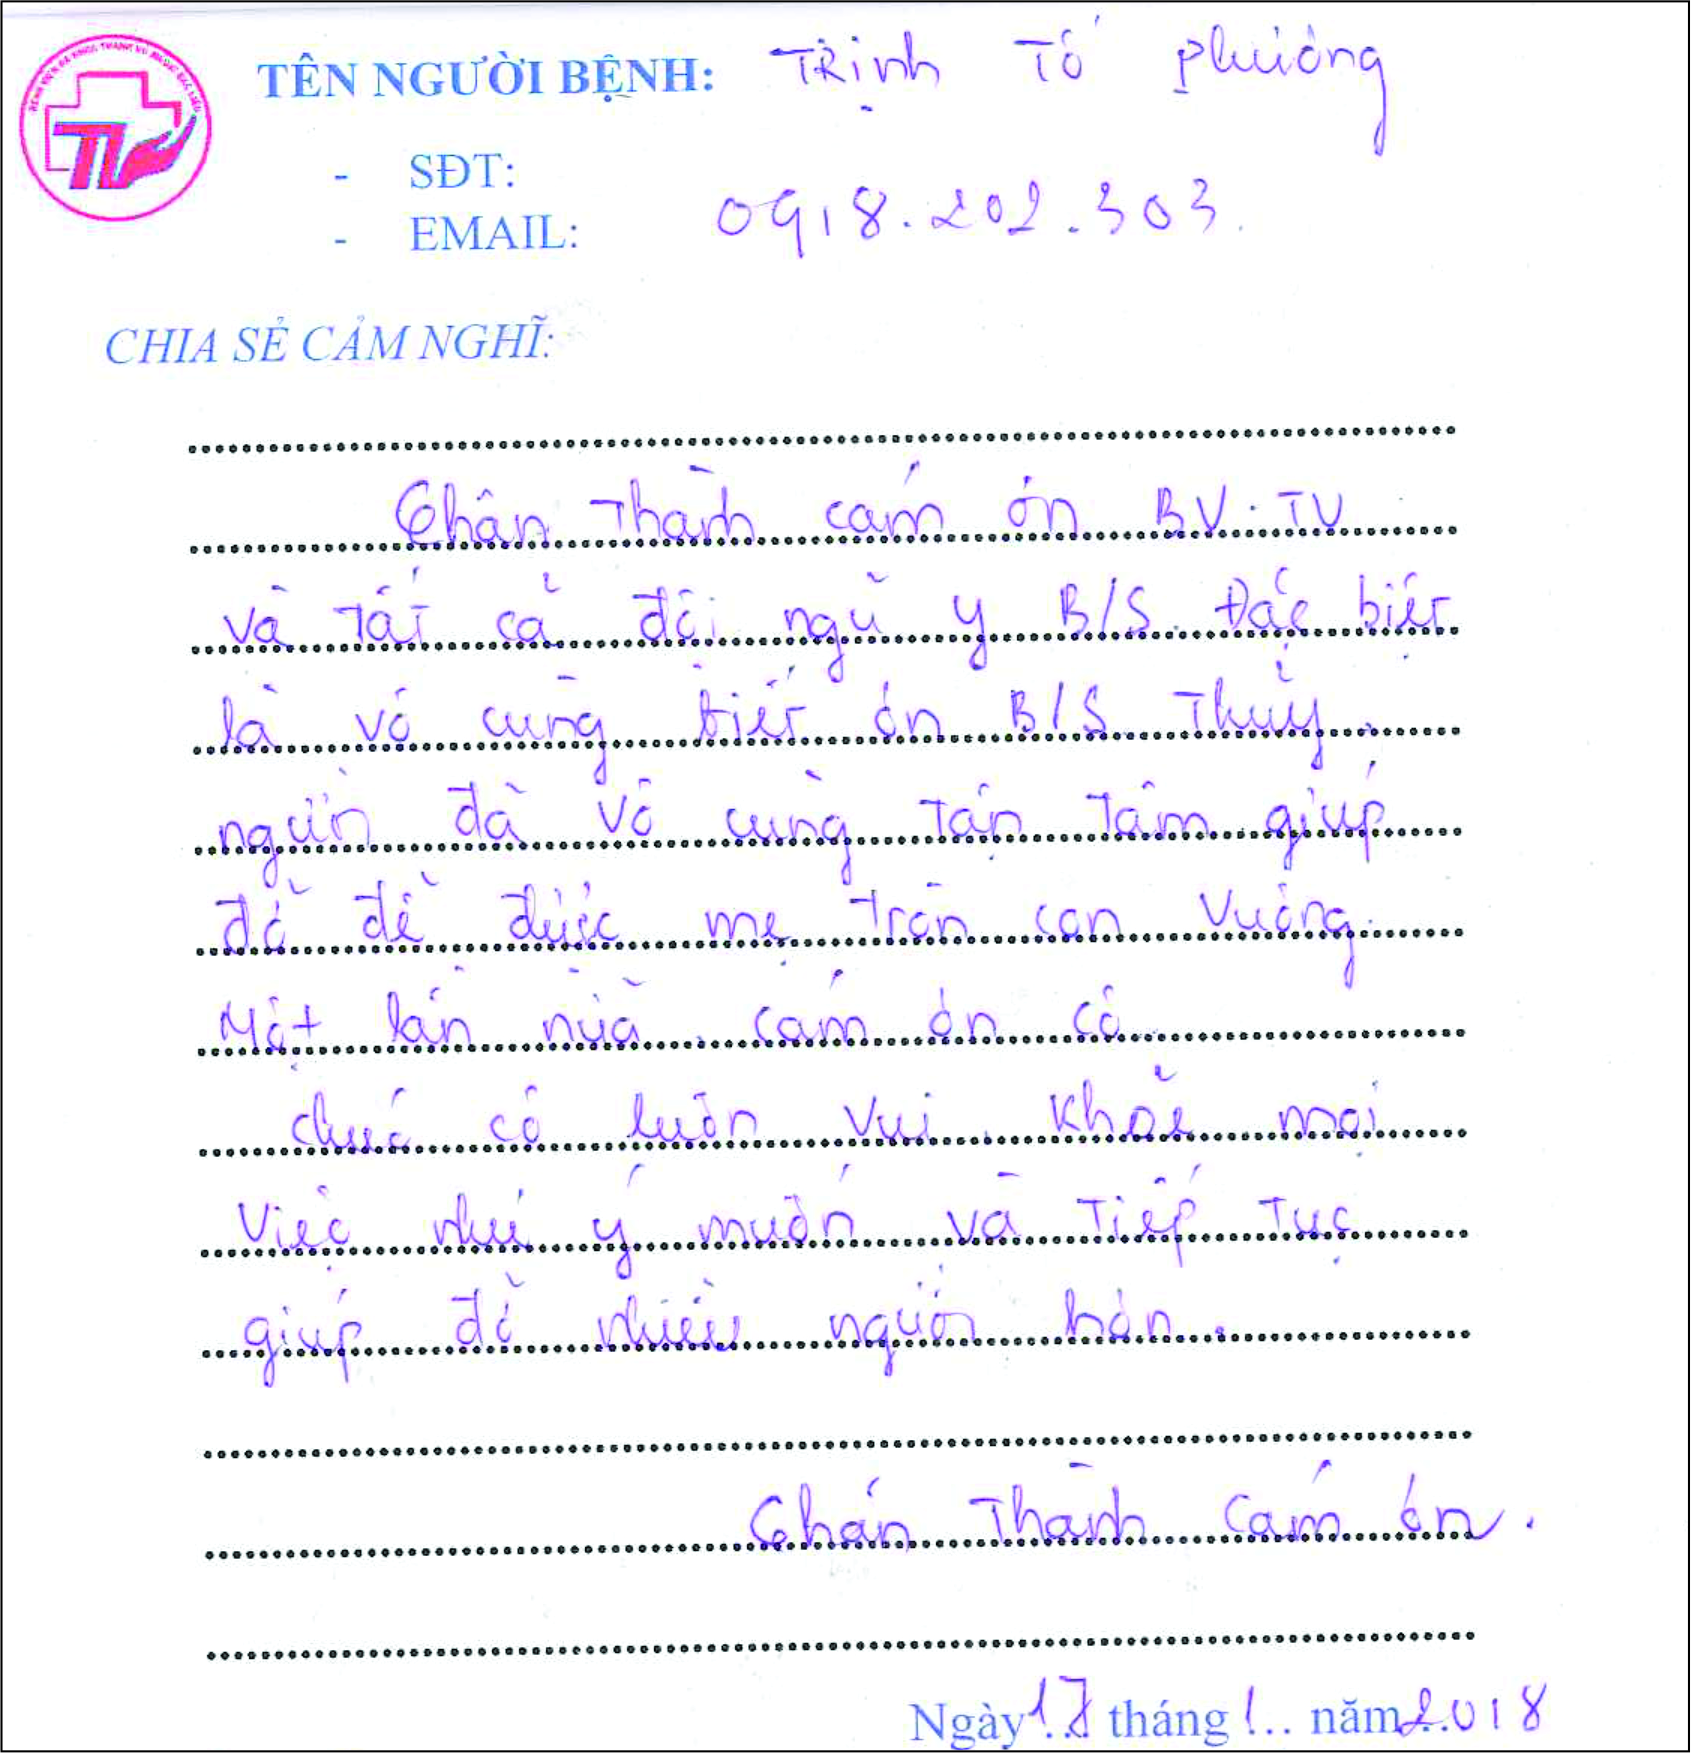 TÊN NGƯỜI BỆNH: Trịnh Tố Phương
- SĐT:
- EMAIL: 0918.202.303.
CHIA SẺ CẢM NGHĨ:
Chân Thành cám ơn BV. TV
và Tất cả đội ngũ y B/S. Đặc biệt
là vô cùng biết ơn B/S Thủy.
người đã vô cùng Tận Tâm giúp
đỡ để được mẹ Tròn con vuông.
Một lần nữa. cám ơn cô
chúc cô luôn vui. khỏe mọi
việc như ý muốn và Tiếp Tục
giúp đỡ nhiều người hơn.
Chân Thành Cám ơn.
Ngày 17 tháng 1.. năm 2018